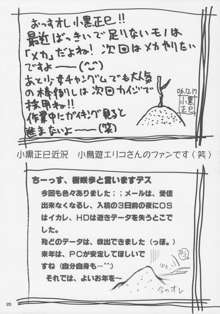 おっすオレ小黒正巳!!
最近ぼっきいで足りないモノは
「メカ」だよね! 次回はメカやりたい
ですよ——(^-^)
あと少年チャンプムでも大人気
の棒倒しは次回カイジで
採用ね!!
作業中にカイジング見ると
進まないよ——(笑)
'06.12.17
小黒
正巳
小黒正巳近況 小鳥遊エリコさんのファンです(笑)
ちーっす、樹咲歩と言いますデス
今回も色々ありました;;メールは、受信
出来なくなるし、入稿の3日前の夜にOS
はイカレ、HDは逝きデータを失うとこでし
た。
殆どのデータは、救出できました(っぽ。)
来年は、PCが安定してほしいで
すね(自分自身も…^^)
それでは、よいお年を〜
今のオレ